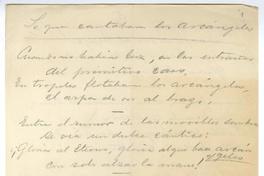 Lo que cantaban los arcángeles
Cuando no había luz, en las entrañas
del primitivo caos,
En tropeles flotaban los arcángeles,
el arpa de oro al brazo.
Entre el rumor de las movibles sombras
se oía un dulce cántico:
¡Gloria al Eterno, gloria algún
con solo alzar la mano!